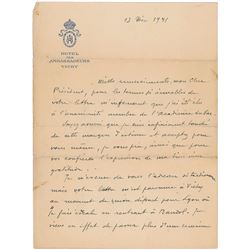 HOTEL
DES
AMBASSADEURS
VICHY
13 Déc 1941
Mille remerciements, mon cher
Président, pour les termes si aimables de
votre lettre m'informant que j'ai été élu
à l'unanimité membre de l'Académie
Soyez assuré que je suis infiniment touché
de cette marque d'estime et acceptez pour
vous même, je vous prie, ainsi que pour
vos confrères l'expression de ma bien vive
gratitude.
Je m'excuse de vous
mais votre lettre m'est parvenue à Vichy
au moment de mon départ pour Lyon où
je fais en rentrant à Bandol. Je
viens en effet de passer plus d'une semaine